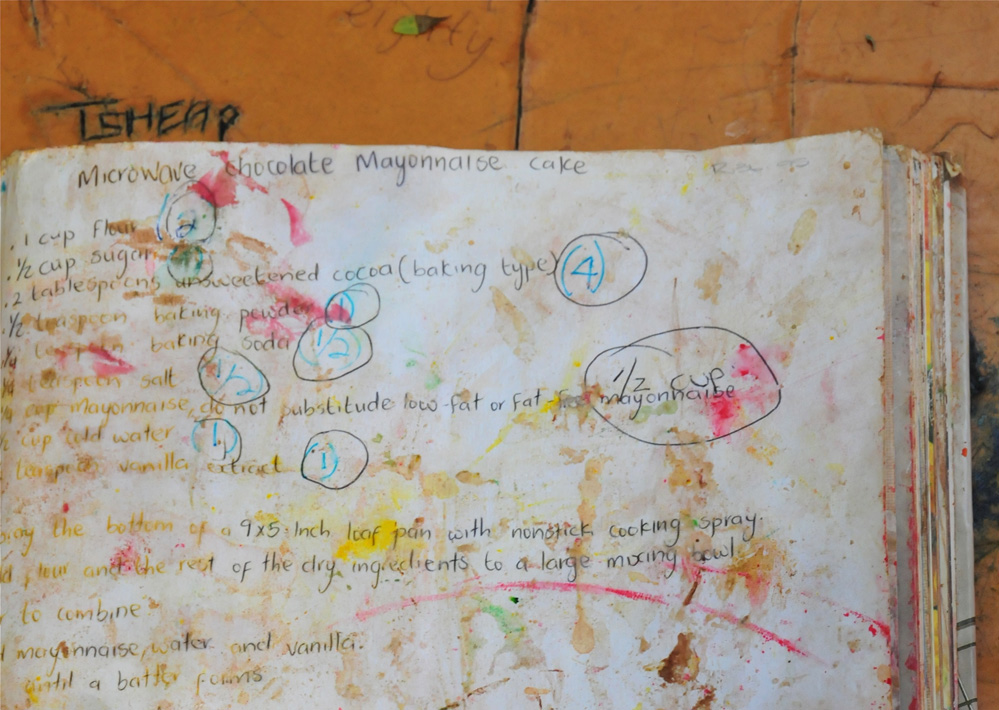 eighty
TSHEAP
Microwave chocolate Mayonnaise cake
. 1 cup flour (2)
. 1/2 cup sugar
. 2 tablespoons unsweetened cocoa (baking type) (4)
. 1/2 teaspoon baking powder 1
1/4 teaspoon baking soda 1/2
1/4 teaspoon salt 1/2
1/2 cup
cup mayonnaise, do not substitute low-fat or fat-free mayonnaise
cup cold water 1
teaspoon vanilla extract (1)
the bottom of a 9x5-Inch loaf pan with nonstick cooking spray.
flour and the rest of the dry ingredients to a large mixing bowl
to combine
mayonnaise, water and vanilla.
until a batter forms